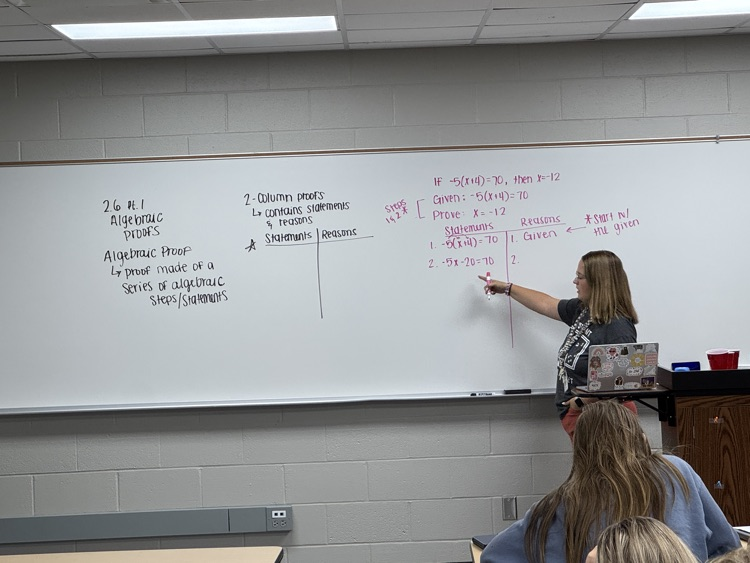 2.6 Pt. 1
Algebraic
Proofs
Algebraic Proof
↳ proof made of a
series of algebraic
steps/statements
2-Column proofs
↳ contains statements
& reasons
* Statements | Reasons
If -5(x+4)=70, then x=-12
Steps
1 & 2 *
Given: -5(x+4)=70
Prove: x=-12
Statements | Reasons
1. -5(x+4)=70 | 1. Given ← *Start w/
the given
2. -5x-20=70 | 2.